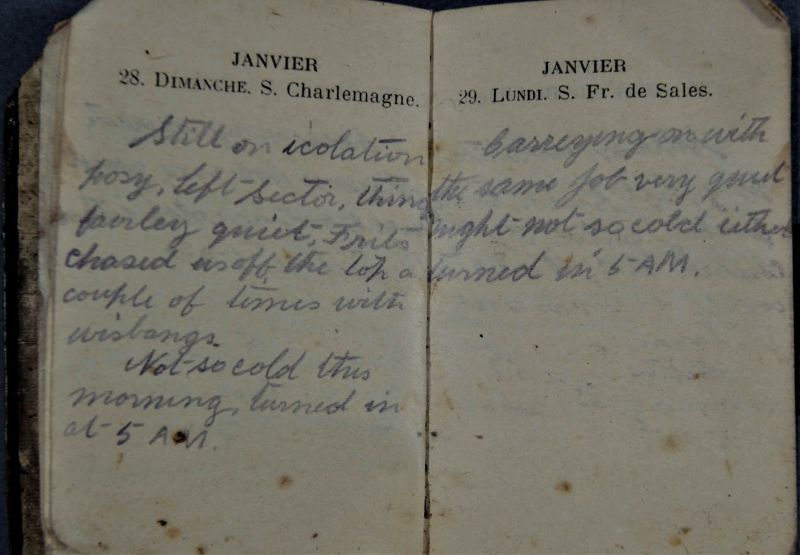 JANVIER
28. DIMANCHE. S. Charlemagne.
Still on icolation
posy, left Sector, things
fairley quiet, Frits
chased us off the top a
couple of times with
wisbangs.
Not so cold this
morning, turned in
at 5 AM.
JANVIER
29. LUNDI. S. Fr. de Sales.
Carreying on with
the same job very quiet
night not so cold either
turned in 5 AM.